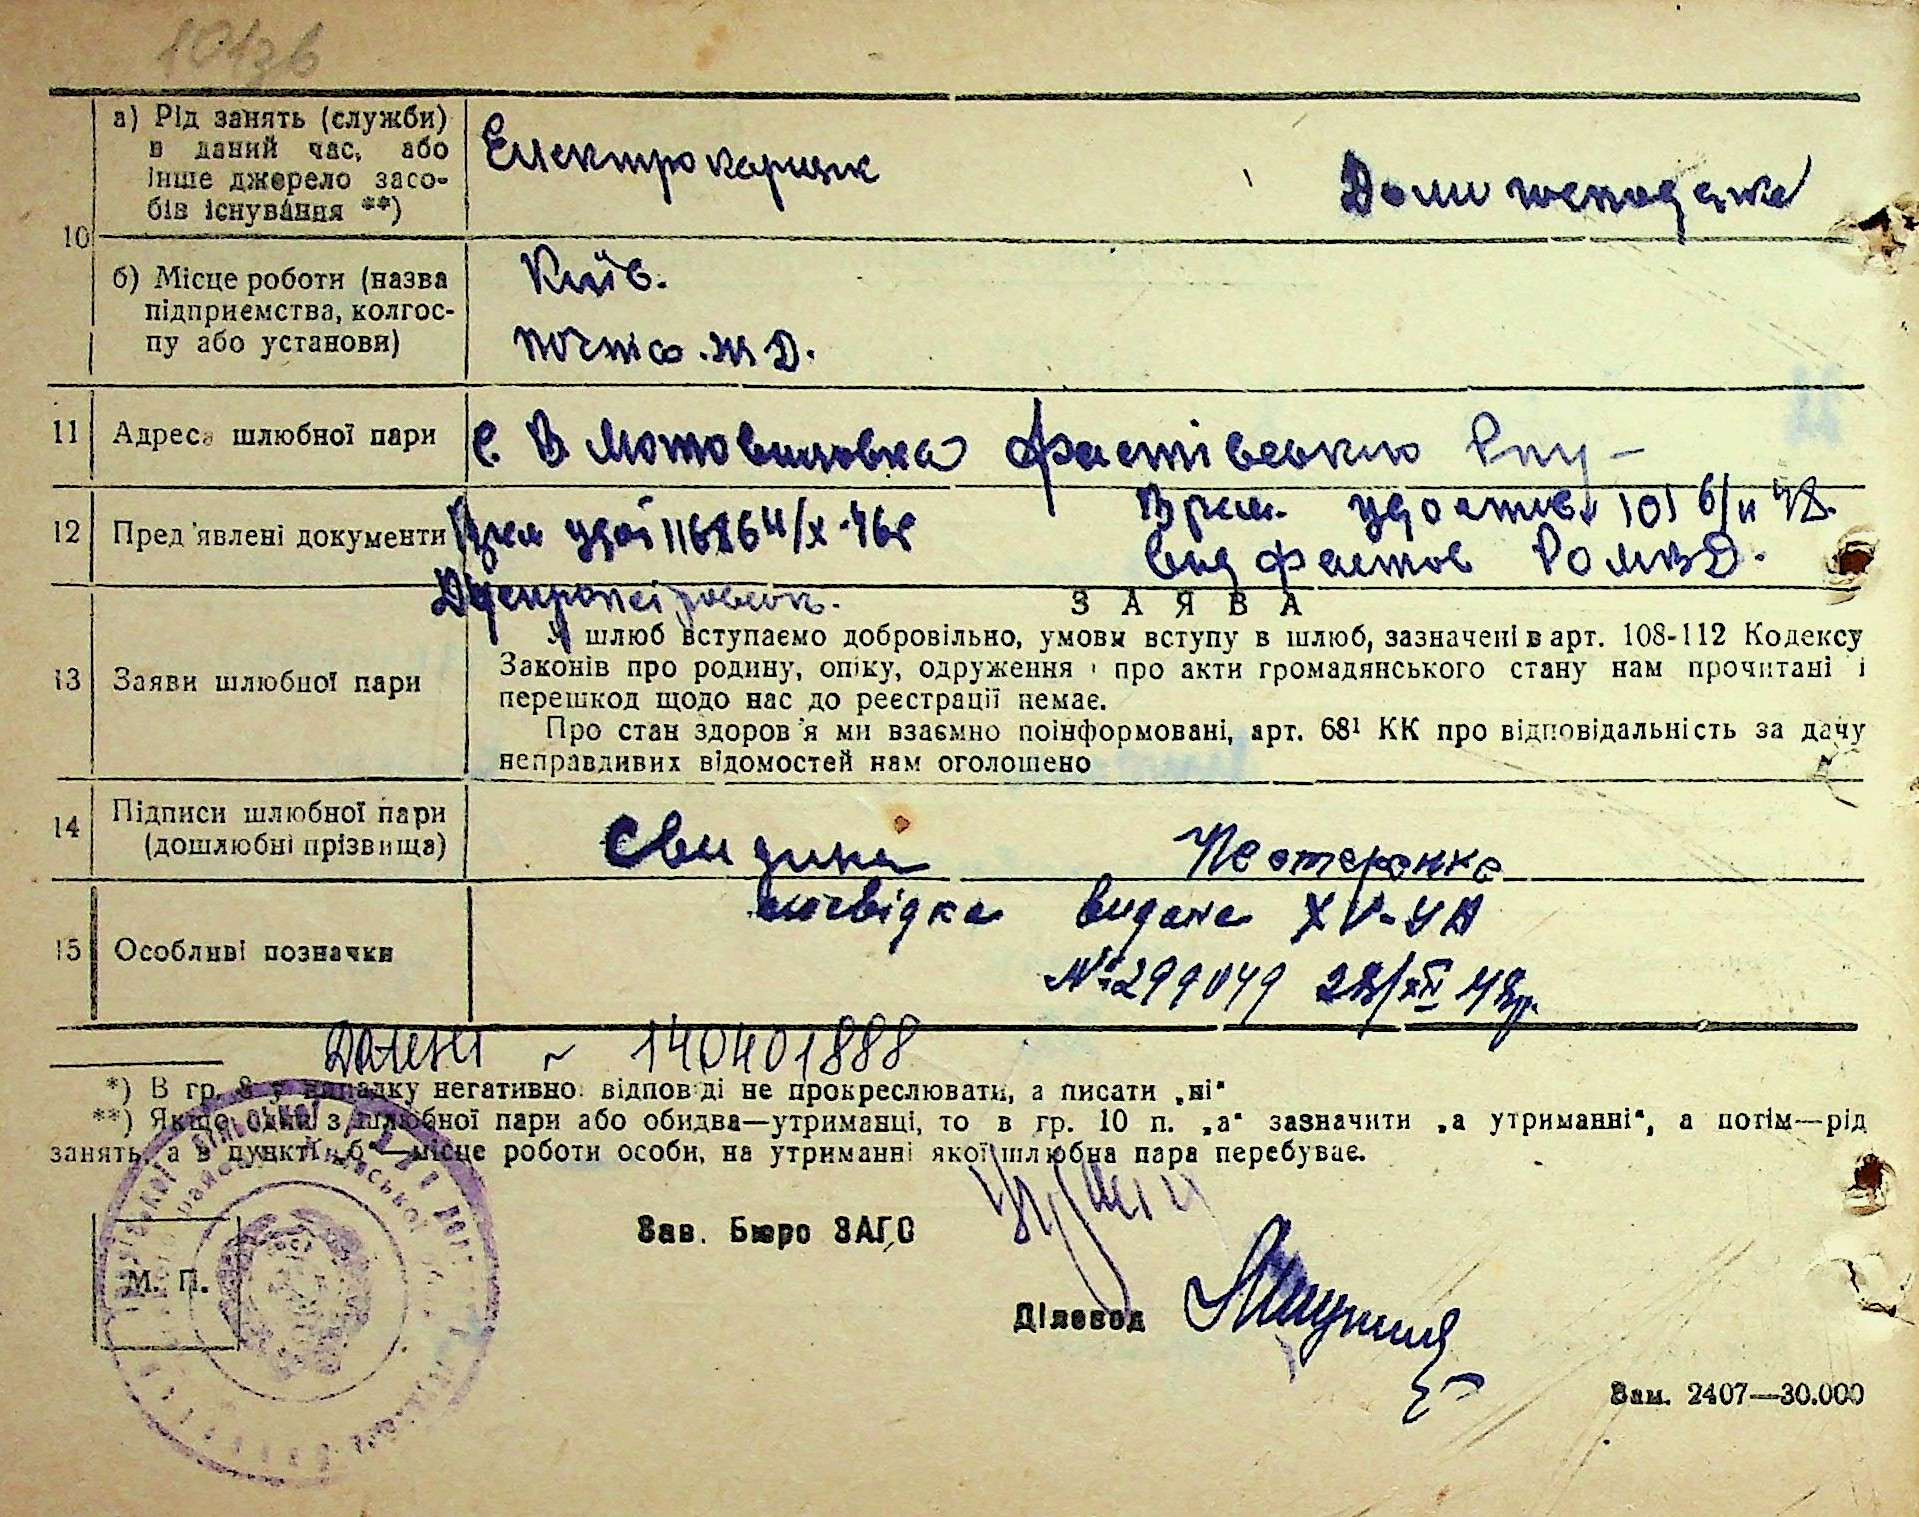 а) Рід занять (служби)
в даний час, або
інше джерело засо-
бів існування **)
Електрокарщик
Домогосподарка
10
б) Місце роботи (назва
підприємства, колгос-
пу або установи)
Київ.
11 Адреса шлюбної пари
с. В Мотовиловка Фастівського
12 Пред'явлені документи
101 6/ІІ 48.
від Фастов РО МВД.
ЗАЯВА
13 Заяви шлюбної пари
У шлюб вступаємо добровільно, умови вступу в шлюб, зазначені в арт. 108-112 Кодексу
Законів про родину, опіку, одруження і про акти громадянського стану нам прочитані і
перешкод щодо нас до реєстрації немає.
Про стан здоров'я ми взаємно поінформовані, арт. 68¹ КК про відповідальність за дачу
неправдивих відомостей нам оголошено
14 Підписи шлюбної пари
(дошлюбні прізвища)
Свидина Нестеренко
15 Особливі позначки
видана
№ 299049 28/XII 48р.
140401888
*) В гр. 8 у випадку негативної відповіді не прокреслювати, а писати „ні"
**) Якщо один з шлюбної пари або обидва—утриманці, то в гр. 10 п. „а" зазначити „а утриманні", а потім—рід
занять, а в пункті „б"—місце роботи особи, на утриманні якої шлюбна пара перебуває.
Зав. Бюро ЗАГС
М. П.
Діловод
Зам. 2407—30.000